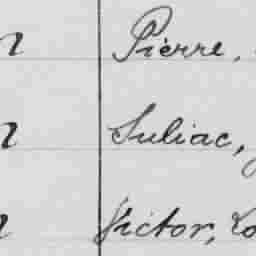 n Pierre,
n Suliac,
n Victor,